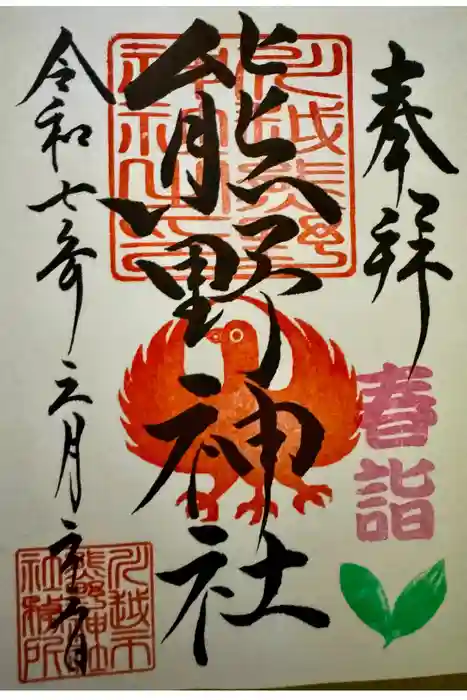 奉拝
春詣
熊野神社
川越熊野神社之印
令和七年三月
川越市熊野神社社務所